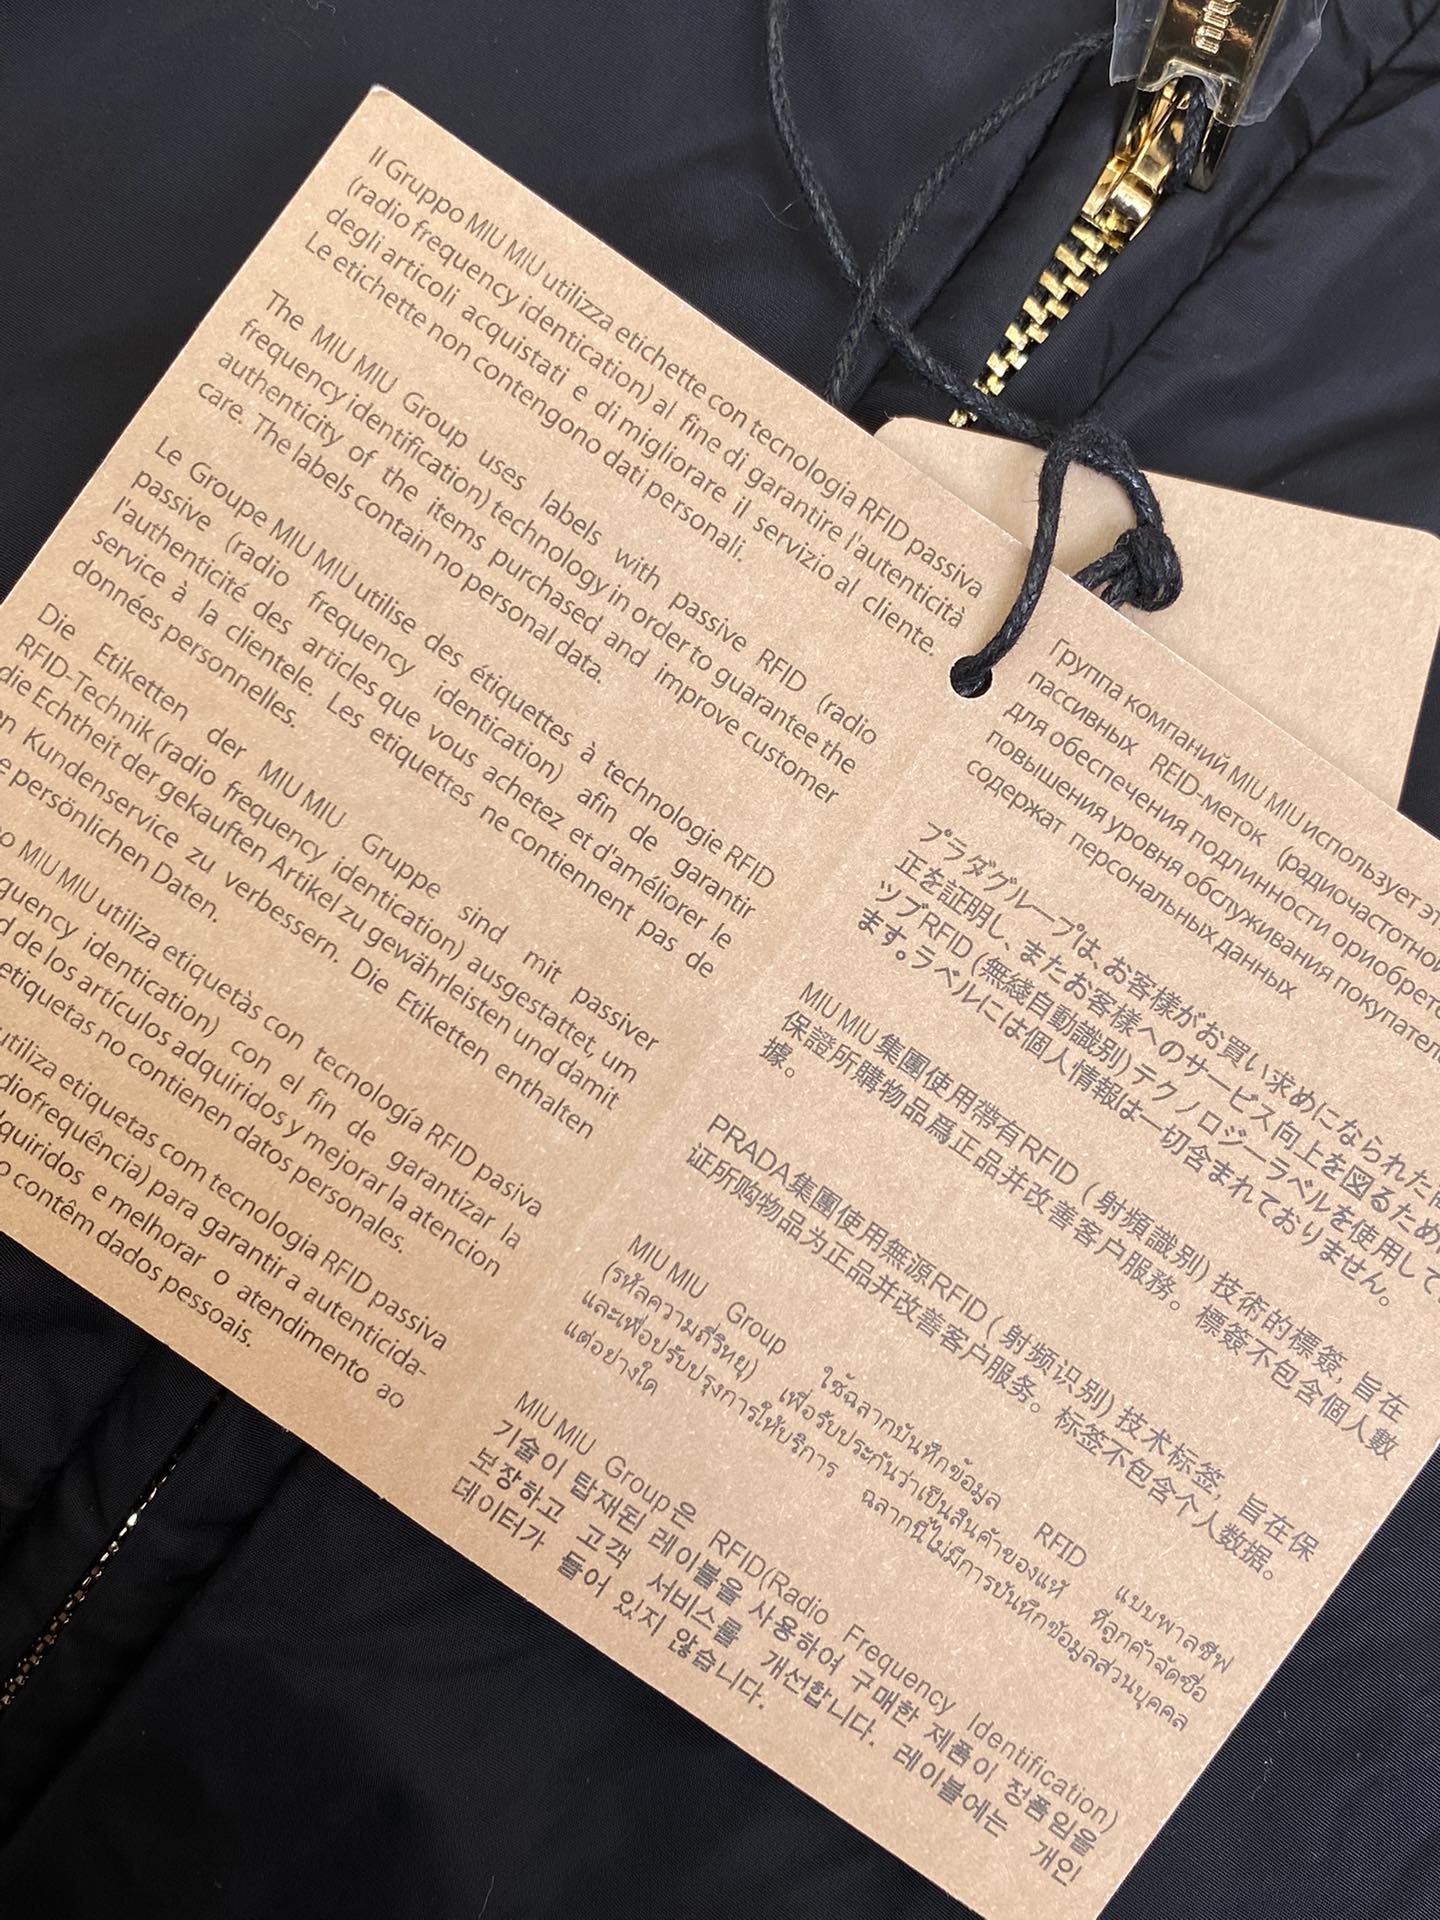 miu
Il Gruppo MIU MIU utilizza etichette con tecnologia RFID passiva
(radio frequency identication) al fine di garantire l'autenticità
degli articoli acquistati e di migliorare il servizio al cliente.
Le etichette non contengono dati personali.
The MIU MIU Group uses labels with passive RFID (radio
frequency identification) technology in order to guarantee the
authenticity of the items purchased and improve customer
care. The labels contain no personal data.
Le Groupe MIU MIU utilise des étiquettes à technologie RFID
passive (radio frequency identication) afin de garantir
l'authenticité des articles que vous achetez et d'améliorer le
service à la clientele. Les etiquettes ne contiennent pas de
données personnelles.
Die Etiketten der MIU MIU Gruppe sind mit passiver
RFID-Technik (radio frequency identication) ausgestattet, um
die Echtheit der gekauften Artikel zu gewährleisten und damit
Kundenservice zu verbessern. Die Etiketten enthalten
persönlichen Daten.
MIU MIU utiliza etiquetàs con tecnología RFID pasiva
identication) con el fin de garantizar la
de los artículos adquiridos y mejorar la atencion
etiquetas no contienen datos personales.
utiliza etiquetas com tecnologia RFID passiva
para garantir a autenticida-
e melhorar o atendimento ao
contêm dados pessoais.
Группа компаний MIU MIU использует
пассивных REID-меток (радиочастотной
для обеспечения подлинности ориобрете
повышения уровня обслуживания покупател
содержат персональных данных
プラダグループは、お客様がお買い求めになられた
正を証明し、またお客様へのサービス向上を図るため
ップRFID (無綫自動識別) テクノロジーラベルを使用して
ます。ラベルには個人情報は一切含まれておりません。
MIU MIU 集團使用帶有RFID ( 射頻識別) 技術的標簽, 旨在
保證所購物品爲正品并改善客户服務。標簽不包含個人數
據。
PRADA集團使用無源RFID ( 射频识别) 技术标签, 旨在保
证所购物品为正品并改善客户服务。标签不包含个人数据。
MIU MIU Group ใช้ฉลากบันทึกข้อมูล RFID แบบพาสซีฟ
(รหัสความถี่วิทยุ) เพื่อรับประกันว่าเป็นสินค้าของแท้ ที่ลูกค้าจัดซื้อ
และเพื่อปรับปรุงการให้บริการ ฉลากนี้ไม่มีการบันทึกข้อมูลส่วนบุคคล
แต่อย่างใด
MIU MIU Group은 RFID(Radio Frequency Identification)
기술이 탑재된 레이블을 사용하여 구매한 제품이 정품임을
보장하고 고객 서비스를 개선합니다. 레이블에는 개인
데이터가 들어 있지 않습니다.